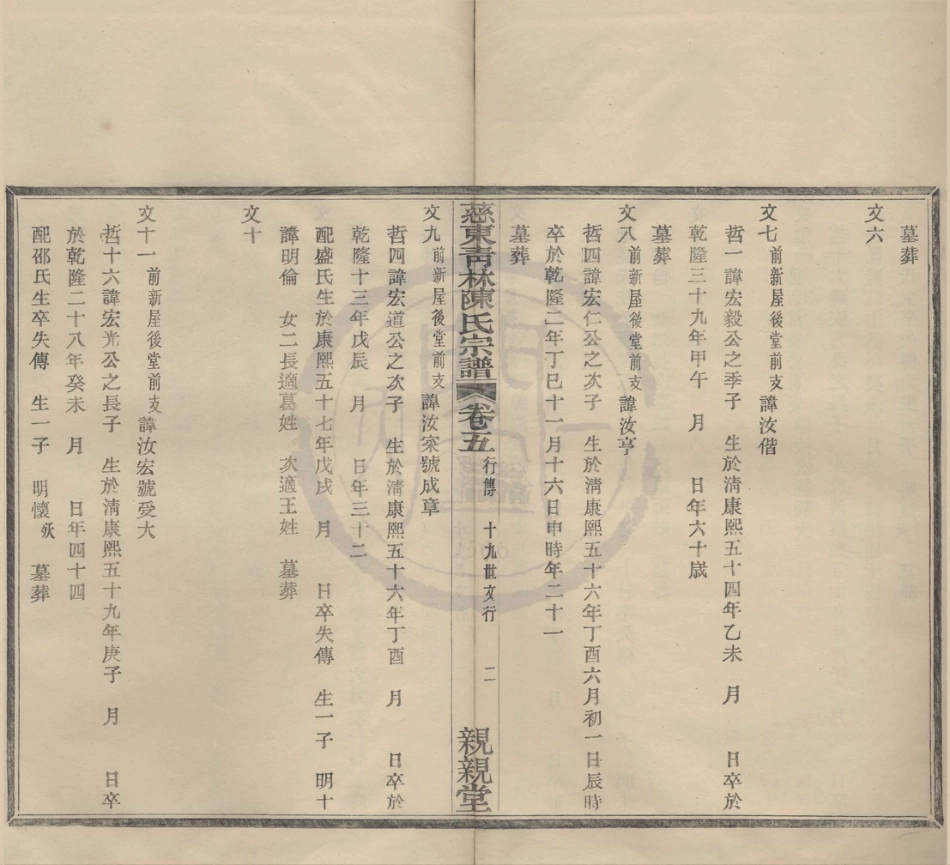 墓葬
文六
文七 前新屋後堂前支 諱汝偕
哲一諱宏毅公之季子 生於清康熙五十四年乙未 月 日卒於
乾隆三十九年甲午 月 日年六十歲
墓葬
文八 前新屋後堂前支 諱汝亨
哲四諱宏仁公之次子 生於清康熙五十六年丁酉六月初一日辰時
卒於乾隆二年丁巳十一月十六日申時年二十一
墓葬
慈東青林陳氏宗譜 卷五 行傳 十九世文行 二 親親堂
文九 前新屋後堂前支 諱汝寀號成章
哲四諱宏道公之次子 生於清康熙五十六年丁酉 月 日卒於
乾隆十三年戊辰 月 日年三十二
配盛氏生於康熙五十七年戊戌 月 日卒失傳 生一子 明十
諱明倫 女二長適葛姓 次適王姓 墓葬
文十
文十一 前新屋後堂前支 諱汝宏號受大
哲十六諱宏光公之長子 生於清康熙五十九年庚子 月 日卒
於乾隆二十八年癸未 月 日年四十四
配邵氏生卒失傳 生一子 明懷 殀 墓葬